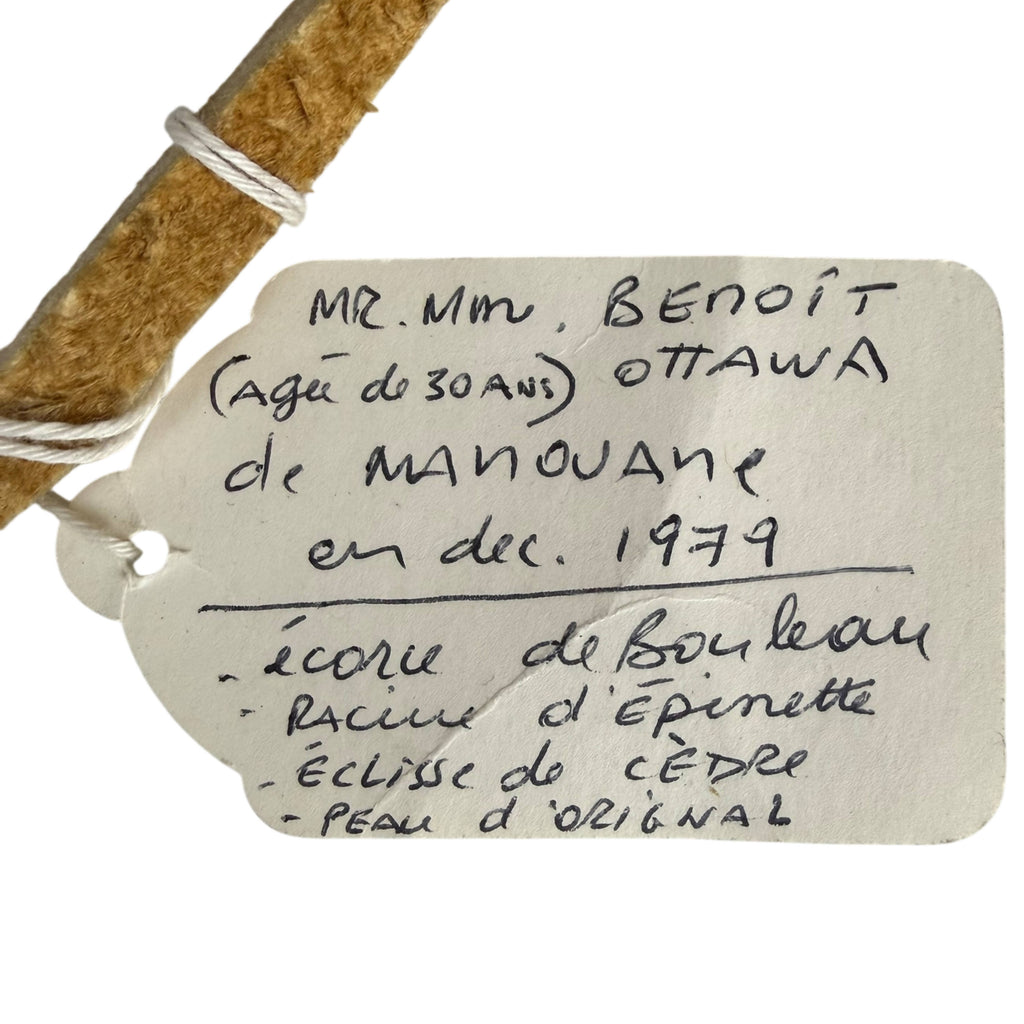 MR. Mm. BENOÎT
(Agée de 30 ANS) OTTAWA
de MANOUANe
en dec. 1979
- écorce de Bouleau
- RAcine d'Épinette
- ÉCLisse de CÈDRe
- PEAU d'ORIGNAL